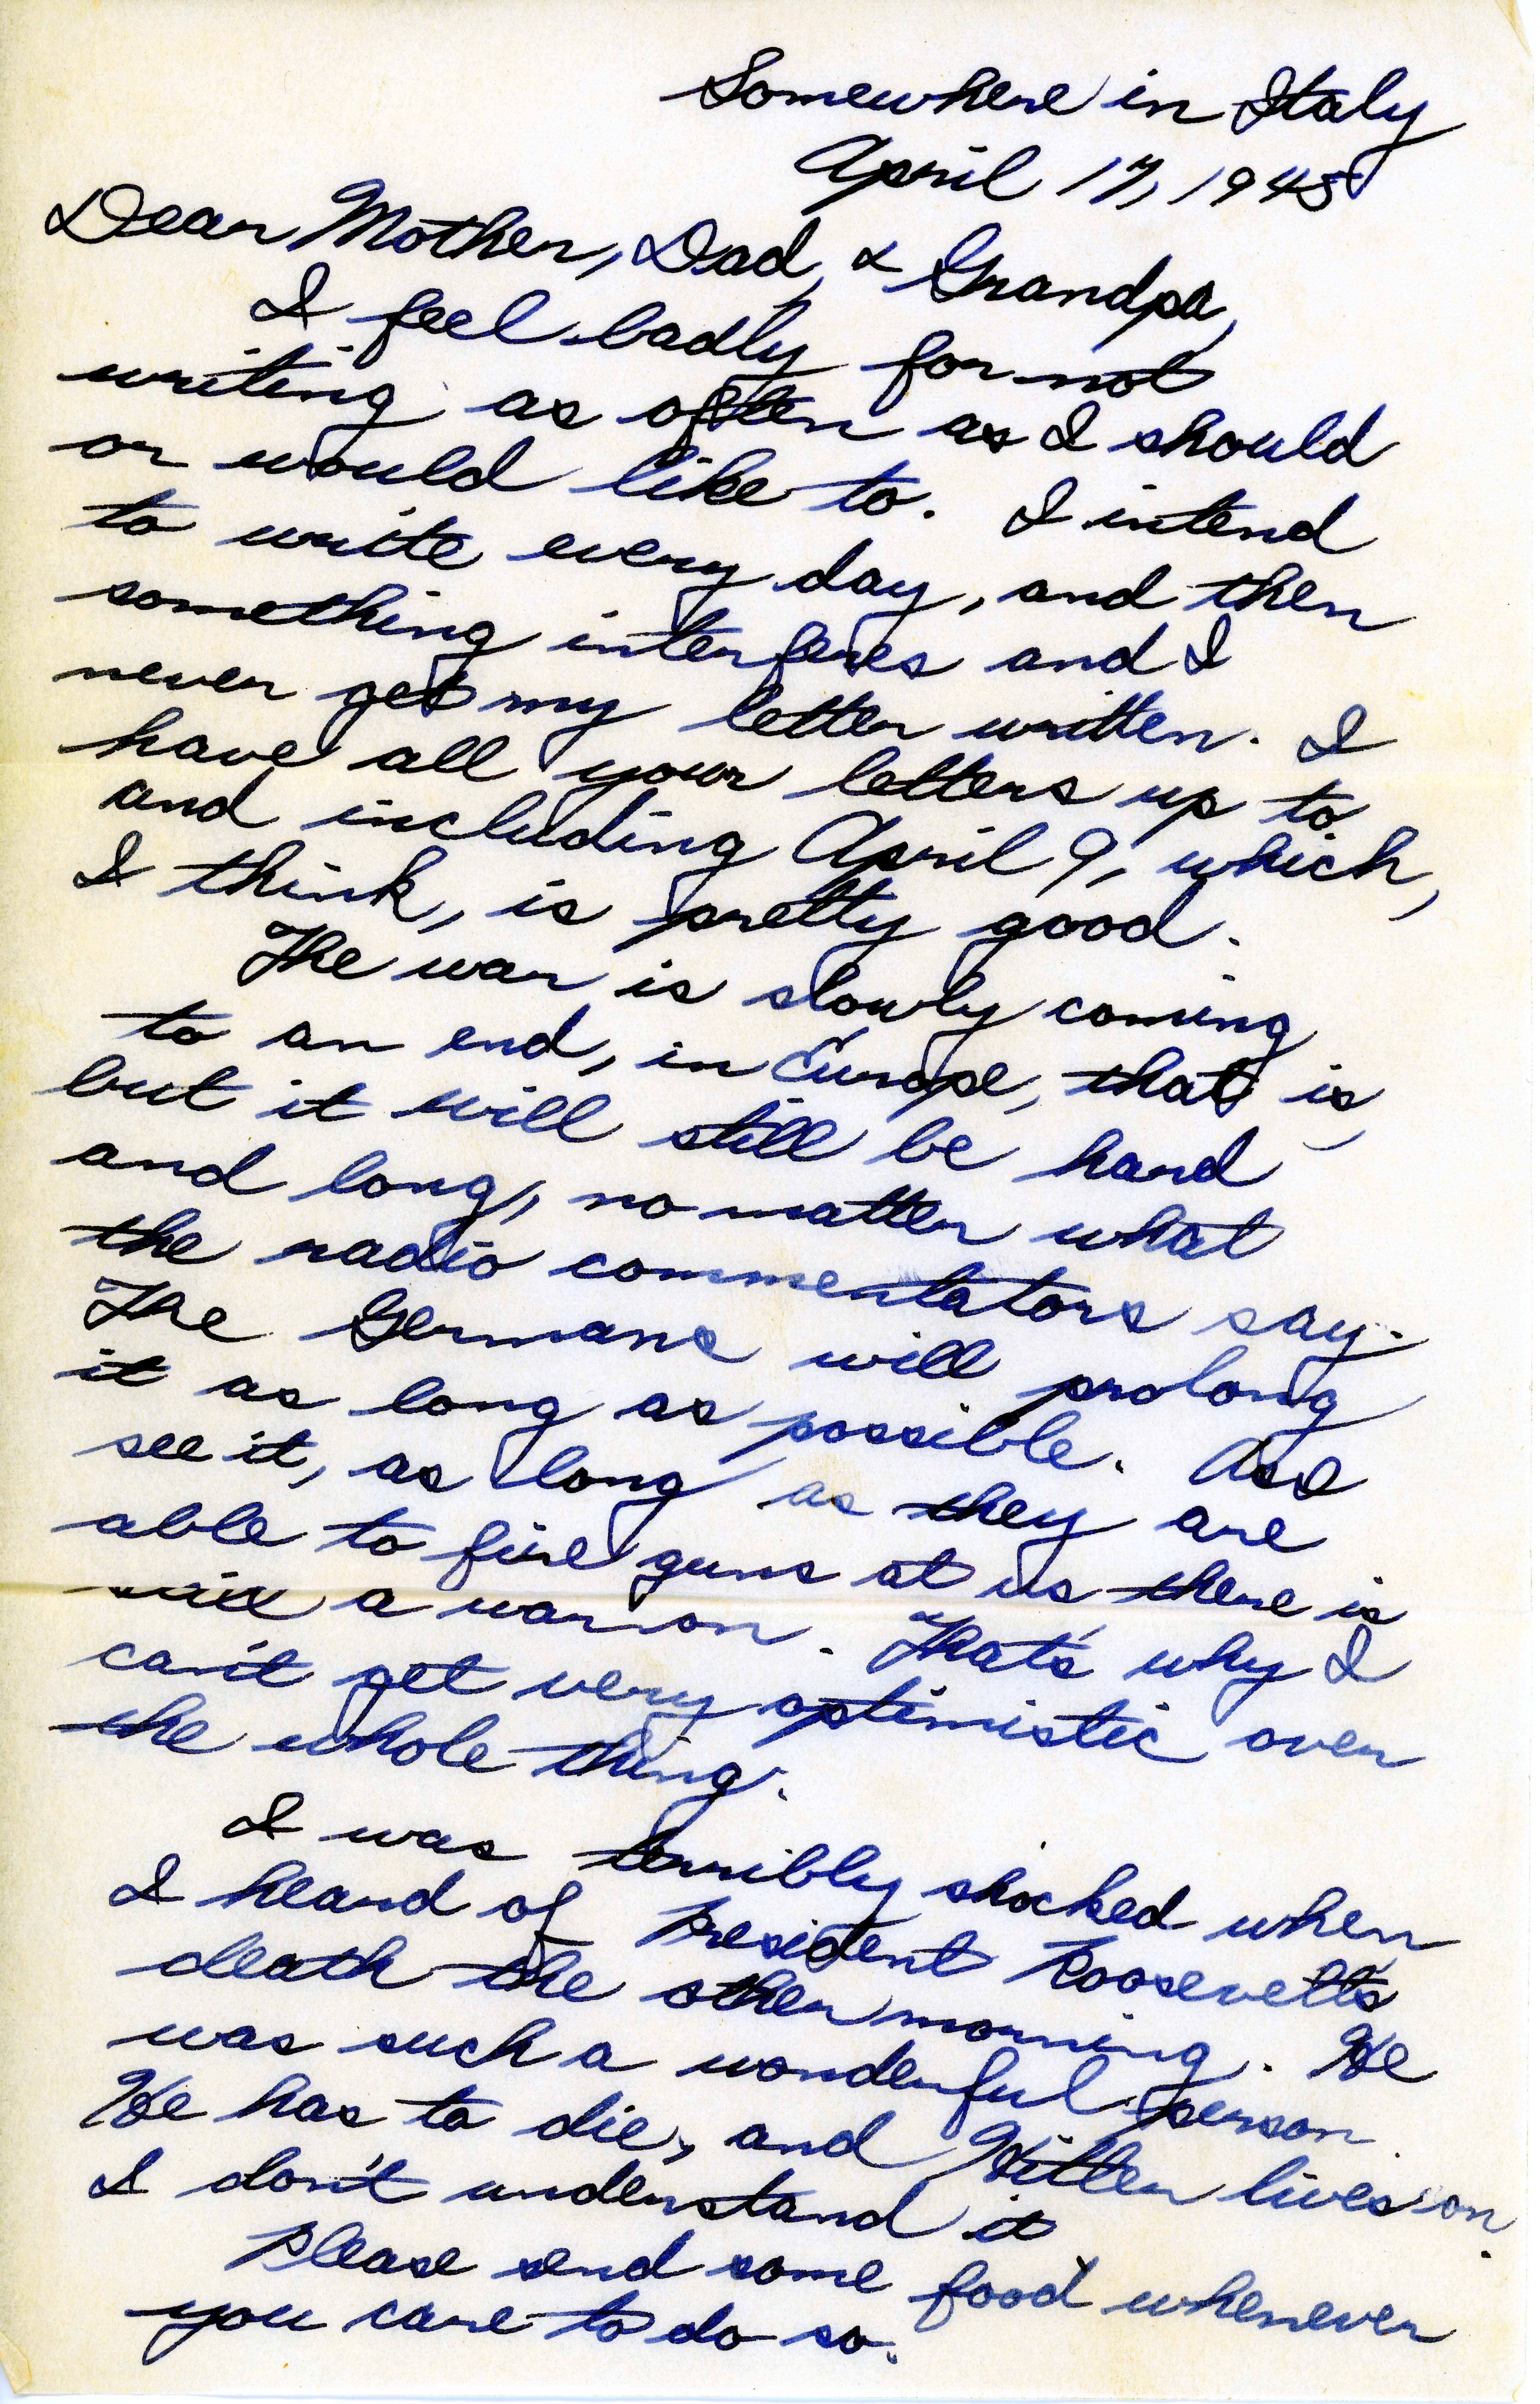 Somewhere in Italy
April 17, 1945
Dear Mother, Dad, & Grandpa,
I feel badly for not
writing as often as I should
or would like to. I intend
to write every day, and then
something interferes and I
never get my letter written. I
have all your letters up to
and including April 9, which,
I think, is pretty good.
The war is slowly coming
to an end, in Europe, that is,
but it will still be hard
and long, no matter what
the radio commentators say.
The Germans will prolong
it as long as possible. As I
see it, as long as they are
able to fire guns at us there is
still a war on. That's why I
can't get very optimistic over
the whole thing.
I was terribly shocked when
I heard of President Roosevelt's
death the other morning. He
was such a wonderful person.
He has to die, and Hitler lives on.
I don't understand it.
Please send some food whenever
you care to do so.